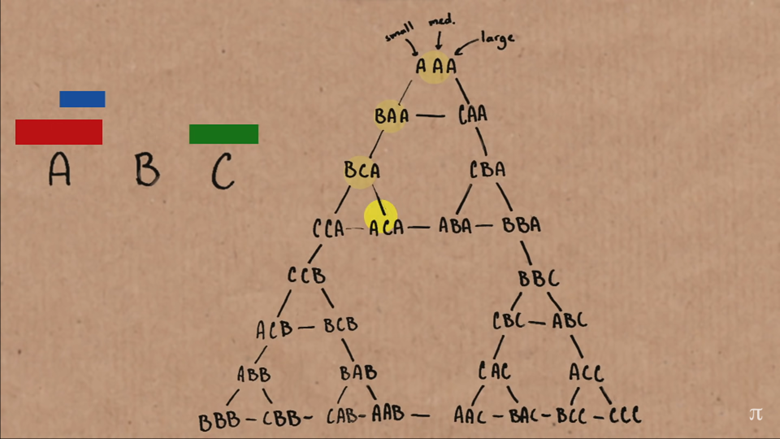 small med. large
A A A
BAA — CAA
BCA CBA
CCA — ACA — ABA — BBA
A B C
CCB BBC
ACB — BCB CBC — ABC
ABB BAB CAC ACC
BBB — CBB — CAB — AAB — AAC — BAC — BCC — CCC
π